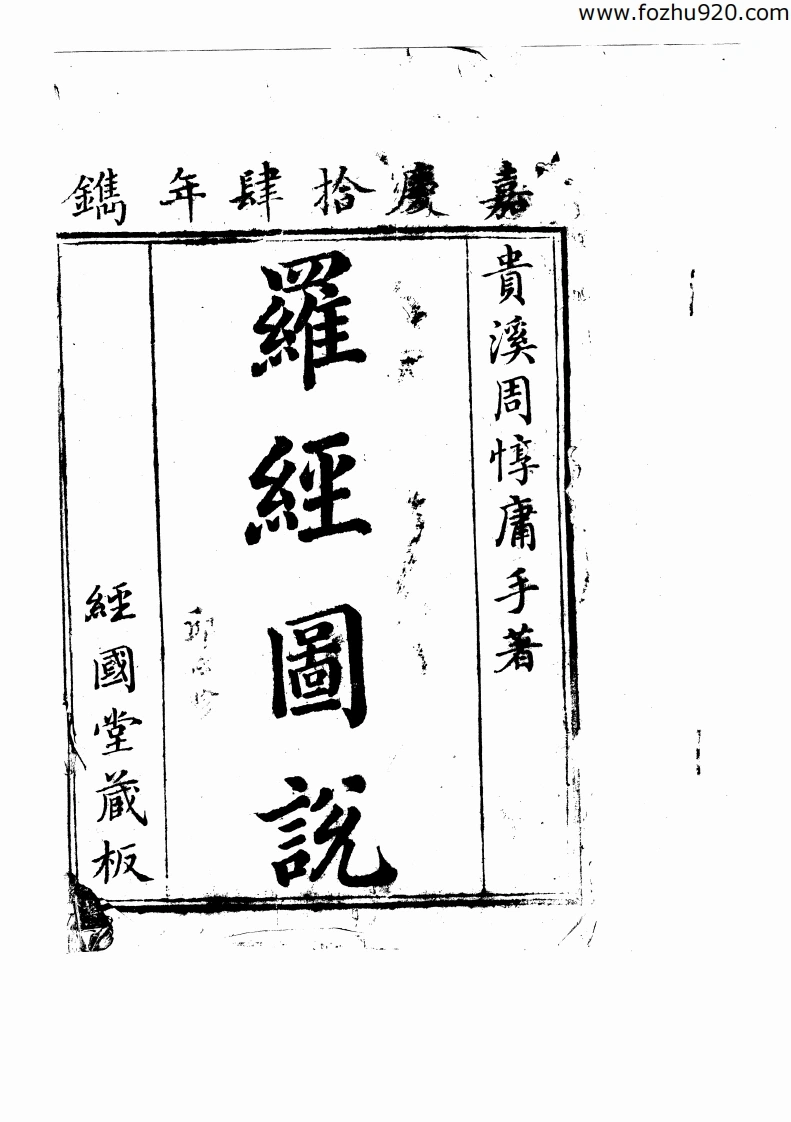 www.fozhu920.com
嘉慶拾肆年鐫
貴溪周惇庸手著
羅經圖說
經國堂藏板